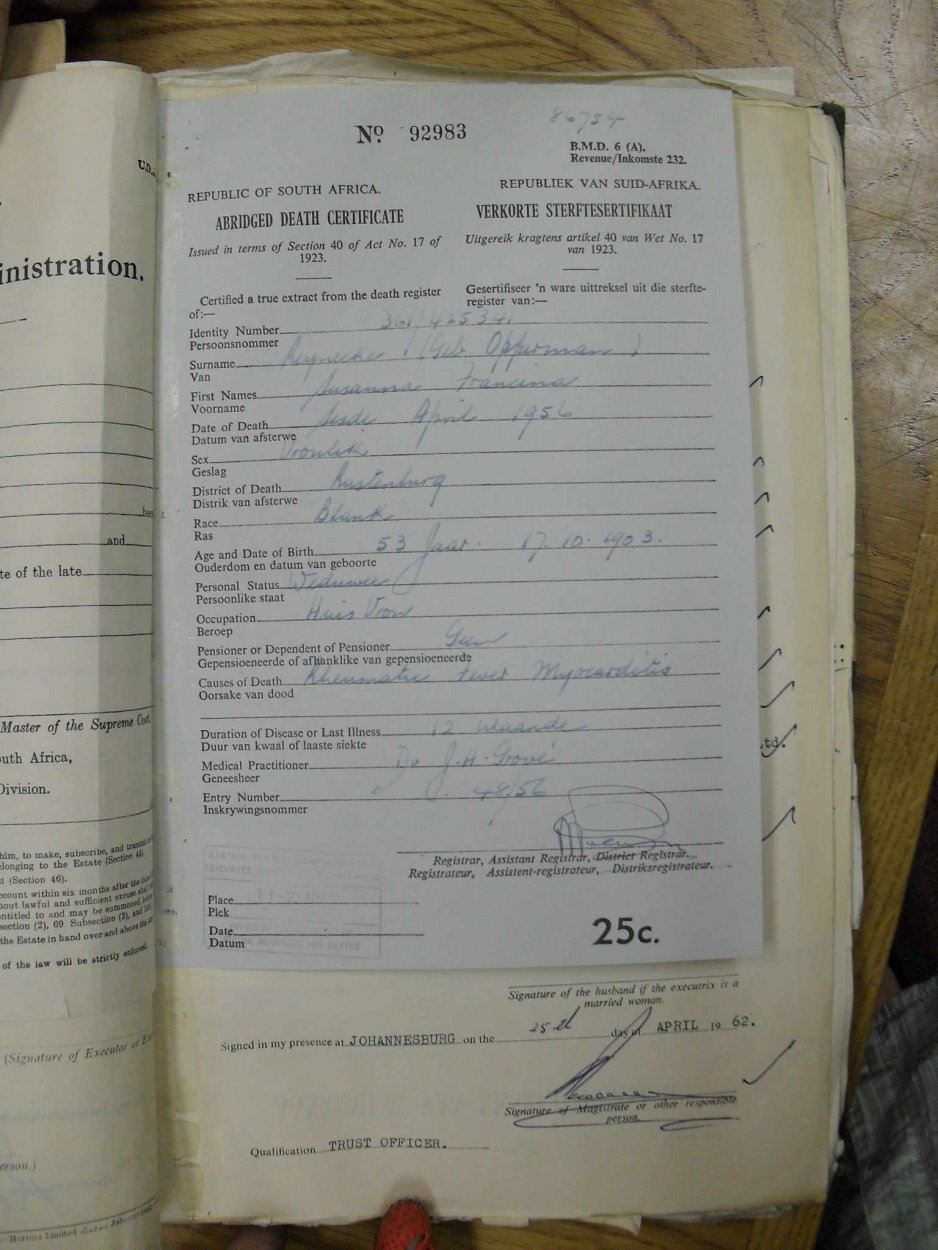 U.D.
inistration.
been
and
te of the late
Master of the Supreme Court
outh Africa,
Division.
him, to make, subscribe, and transmit
elonging to the Estate (Section 44
d (Section 46).
ccount within six months after the
hout lawful and sufficient excuse
entitled to and may be summoned
section (2), 69 Subsection (3), and
the Estate in hand over and above the
of the law will be strictly enforced.
(Signature of Executor or Ex
erson.)
Hortors Limited
86754
Nº 92983
B.M.D. 6 (A).
Revenue/Inkomste 232.
REPUBLIC OF SOUTH AFRICA.
REPUBLIEK VAN SUID-AFRIKA.
ABRIDGED DEATH CERTIFICATE
VERKORTE STERFTESERTIFIKAAT
Issued in terms of Section 40 of Act No. 17 of
1923.
Uitgereik kragtens artikel 40 van Wet No. 17
van 1923.
Certified a true extract from the death register
of:—
Gesertifiseer 'n ware uittreksel uit die sterfte-
register van:—
Identity Number 361/425341
Persoonsnommer
Surname Reynecke (Geb Opperman)
Van
First Names Susanna Francina
Voorname
Date of Death Sesde April 1956
Datum van afsterwe
Sex Vroulik
Geslag
District of Death Rustenburg
Distrik van afsterwe
Race Blank
Ras
Age and Date of Birth 53 Jaar. 17.10.1903.
Ouderdom en datum van geboorte
Personal Status Weduwee
Persoonlike staat
Occupation Huis Vrou
Beroep
Pensioner or Dependent of Pensioner Geen
Gepensioeneerde of afhanklike van gepensioeneerde
Causes of Death Rheumatic Fever Myocarditis
Oorsake van dood
Duration of Disease or Last Illness 12 Maande
Duur van kwaal of laaste siekte
Medical Practitioner Dr J.A. Grové
Geneesheer
Entry Number 48/56
Inskrywingsnommer
Registrar, Assistant Registrar, District Registrar.
Registrateur, Assistent-registrateur, Distriksregistrateur.
Place
Plek
Date
Datum
BIRTHS, MARRIAGES AND DEATHS
25c.
td.
Signature of the husband if the executrix is a
married woman.
Signed in my presence at JOHANNESBURG on the 25th day of APRIL 1962.
Signature of Magistrate or other responsible
person.
Qualification TRUST OFFICER.